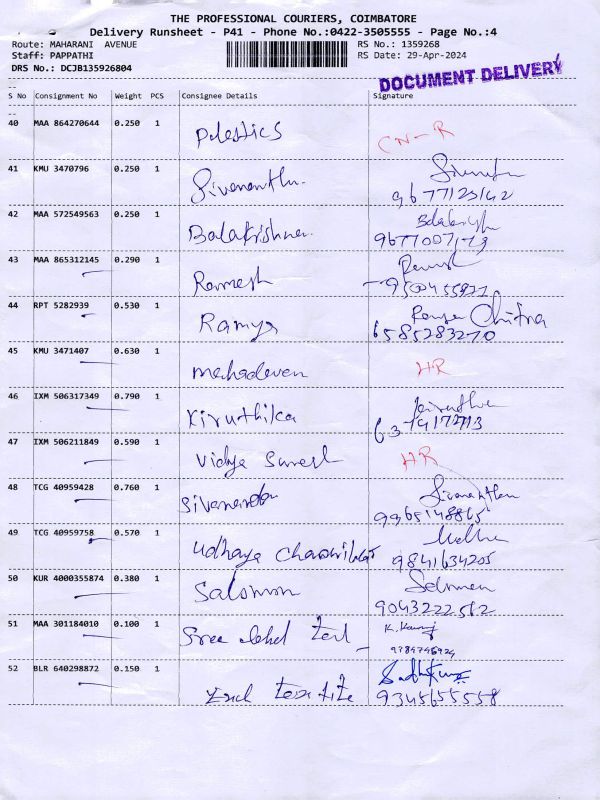 THE PROFESSIONAL COURIERS, COIMBATORE
Delivery Runsheet - P41 - Phone No.:0422-3505555 - Page No.:4
Route: MAHARANI AVENUE RS No.: 1359268
Staff: PAPPATHI RS Date: 29-Apr-2024
DRS No.: DCJB135926804
DOCUMENT DELIVERY
S No Consignment No Weight PCS Consignee Details Signature
40 MAA 864270644 0.250 1 CN-R
41 KMU 3470796 0.250 1 Sivananthu.
9677123142
42 MAA 572549563 0.250 1 Balakrishnan.
43 MAA 865312145 0.290 1 Ramesh
44 RPT 5282939 0.530 1 Ramya Chitra
6585283270
45 KMU 3471407 0.630 1 mahadevan HR
46 IXM 506317349 0.790 1 Kiruthika
47 IXM 506211849 0.590 1 Vidya Suresh HR
48 TCG 40959428 0.760 1
49 TCG 40959758 0.570 1 Udhaya
9841634205
50 KUR 4000355874 0.380 1 Salomon
51 MAA 301184010 0.100 1 Sree
52 BLR 640298872 0.150 1
9345655558